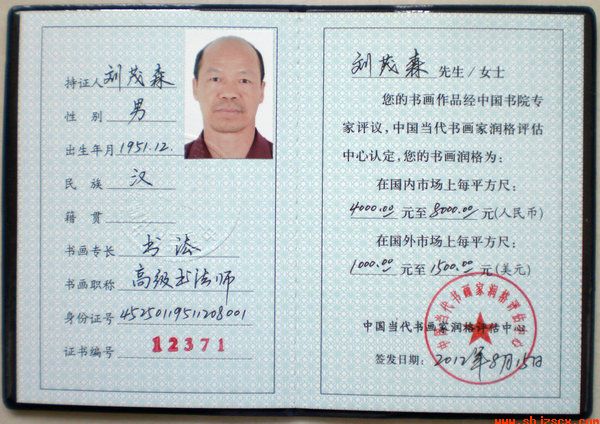 持证人 刘茂森
性 别 男
出生年月 1951.12.
民 族 汉
籍 贯
书画专长 书法
书画职称 高级书法师
身份证号 45250119511208001
证书编号 12371
刘茂森 先生/女士
您的书画作品经中国书院专
家评议，中国当代书画家润格评估
中心认定，您的书画润格为：
在国内市场上每平方尺：
4000.00 元至 8000.00 元(人民币)
在国外市场上每平方尺：
1000.00 元至 1500.00 元(美元)
中国当代书画家润格评估中心
中国当代书画家润格评估中心
签发日期： 2012年8月15日
www.shjzscx.com